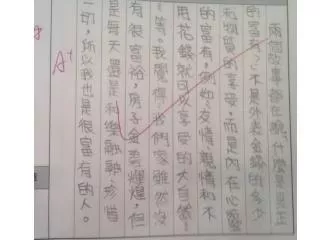 兩個故事都在說,什麼是真正
的富有?不是外表金錢的多少
和物質的享受,而是內在心靈
的富有,例如:友情、親情和不
用花錢就可以享受的大自然
等等。我覺得,我們家雖然沒
有很富裕,房子金碧輝煌,但
是每天還是和樂融融,珍惜
一切,所以我也是很富有的人。
A+